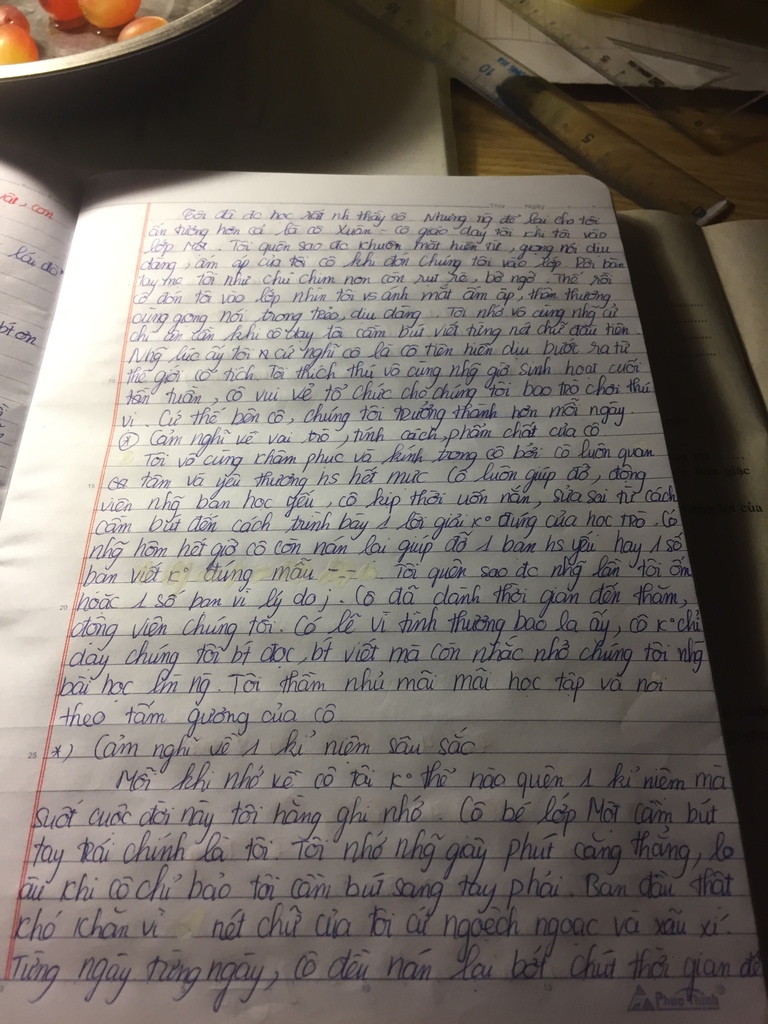 Tôi đã đc học rất nh thầy cô. Nhưng ng để lại cho tôi
ấn tượng hơn cả là cô Xuân - cô giáo dạy tôi khi tôi vào
lớp Một. Tôi quên sao đc khuôn mặt hiền từ, giọng nói dịu
dàng, ấm áp của tôi cô khi đón chúng tôi vào lớp. Rời bàn
tay mẹ tôi như chú chim non còn rụt rè, bỡ ngỡ. Thế rồi
cô đón tôi vào lớp nhìn tôi vs ánh mắt ấm áp, thân thương
cùng giọng nói trong trẻo, dịu dàng. Tôi nhớ vô cùng nhg cử
chỉ ân cần khi cô dạy tôi cầm bút viết từng nét chữ đầu tiên.
Nhg lúc ấy tôi cứ nghĩ cô là cô tiên hiền dịu bước ra từ
thế giới cổ tích. Tôi thích thú vô cùng nhg giờ sinh hoạt cuối
tuần, cô vui vẻ tổ chức cho chúng tôi bao trò chơi thú
vị. Cứ thế bên cô, chúng tôi trưởng thành hơn mỗi ngày.
*) Cảm nghĩ về vai trò, tính cách, phẩm chất của cô
Tôi vô cùng khâm phục và kính trọng cô bởi cô luôn quan
tâm và yêu thương hs hết mực. Cô luôn giúp đỡ, động
viên nhg bạn học yếu, cô kịp thời uốn nắn, sửa sai từ cách
cầm bút đến cách trình bày 1 lời giải k° đúng của học trò. Có
nhg hôm hết giờ cô còn nán lại giúp đỡ 1 bạn hs yếu hay 1 số
bạn viết k° đúng mẫu ... Tôi quên sao đc nhg lần tôi ốm
hoặc 1 số bạn vì lý do j. Cô đã dành thời gian đến thăm,
động viên chúng tôi. Có lẽ vì tình thương bao la ấy, cô k° chỉ
dạy chúng tôi bt đọc, bt viết mà còn nhắc nhở chúng tôi nhg
bài học làm ng. Tôi thầm nhủ mãi mãi học tập và noi
theo tấm gương của cô
*) Cảm nghĩ về 1 kỉ niệm sâu sắc
Mỗi khi nhớ về cô tôi k° thể nào quên 1 kỉ niệm mà
suốt cuộc đời này tôi hằng ghi nhớ. Cô bé lớp Một cầm bút
tay trái chính là tôi. Tôi nhớ nhg giây phút căng thẳng, lo
âu khi cô chỉ bảo tôi cầm bút sang tay phải. Ban đầu thật
khó khăn vì nét chữ của tôi cứ ngoệch ngoạc và xấu xí.
Từng ngày từng ngày, cô đều nán lại bớt chút thời gian để
Phúc Thịnh